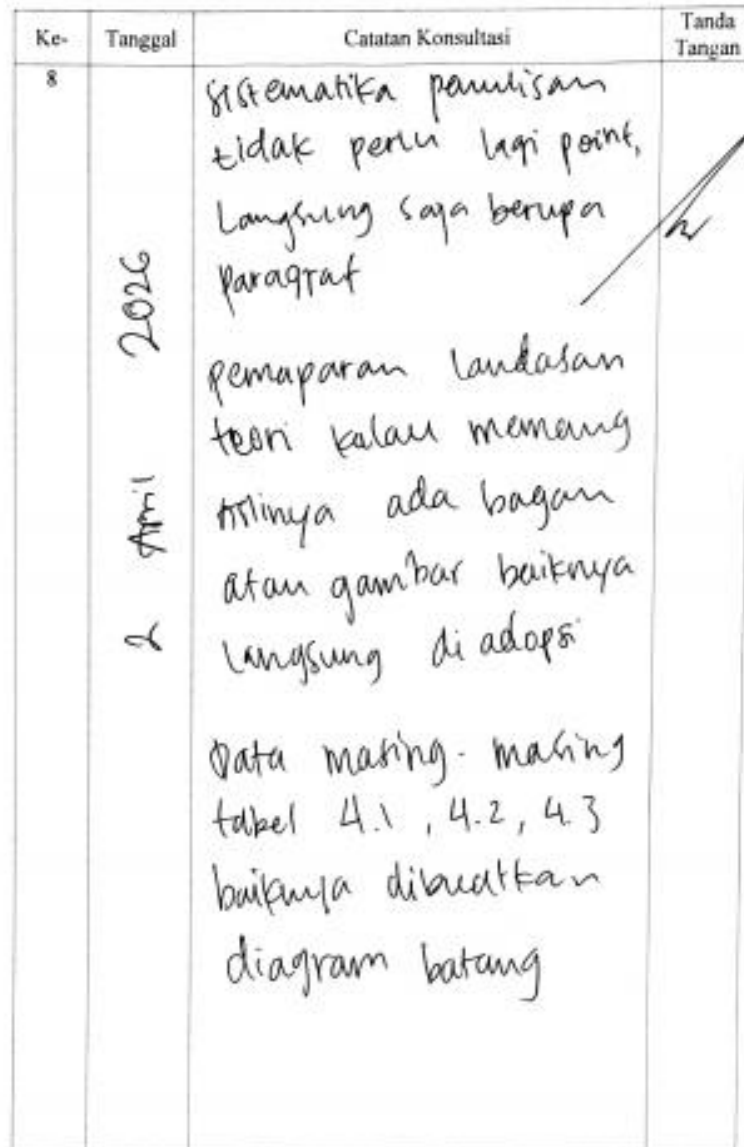 Ke- Tanggal Catatan Konsultasi Tanda Tangan
8
2 April 2026
Sistematika penulisan
tidak perlu lagi point,
Langsung saja berupa
paragraf
pemaparan landasan
teori kalau memang
Aslinya ada bagan
atau gambar baiknya
langsung di adopsi
Data masing-masing
tabel 4.1, 4.2, 4.3
baiknya dibuatkan
diagram batang